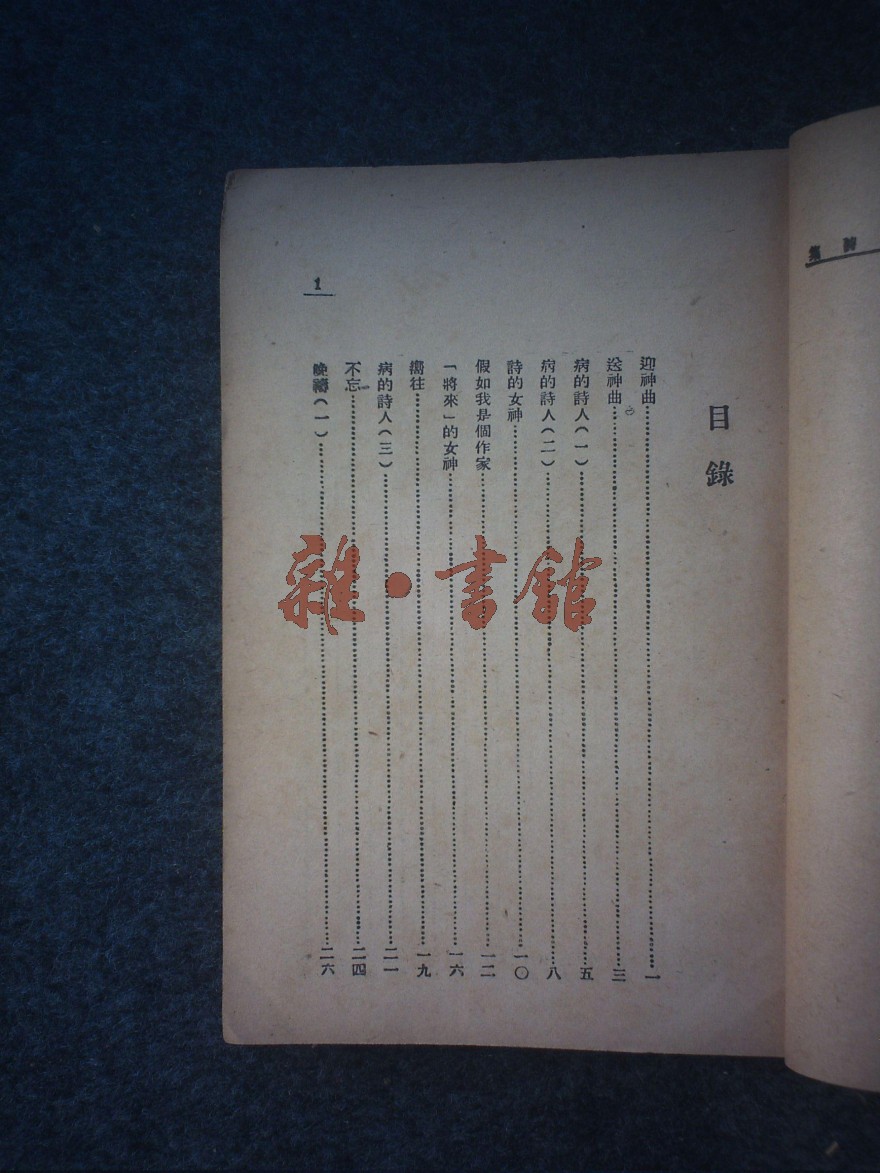 詩集
目錄
迎神曲……一
送神曲……三
病的詩人（一）……五
病的詩人（二）……八
詩的女神……一〇
假如我是個作家……一二
「將來」的女神……一六
嚮往……一九
病的詩人（三）……二一
不忘……二四
晚禱（一）……二六
1
雜·書館